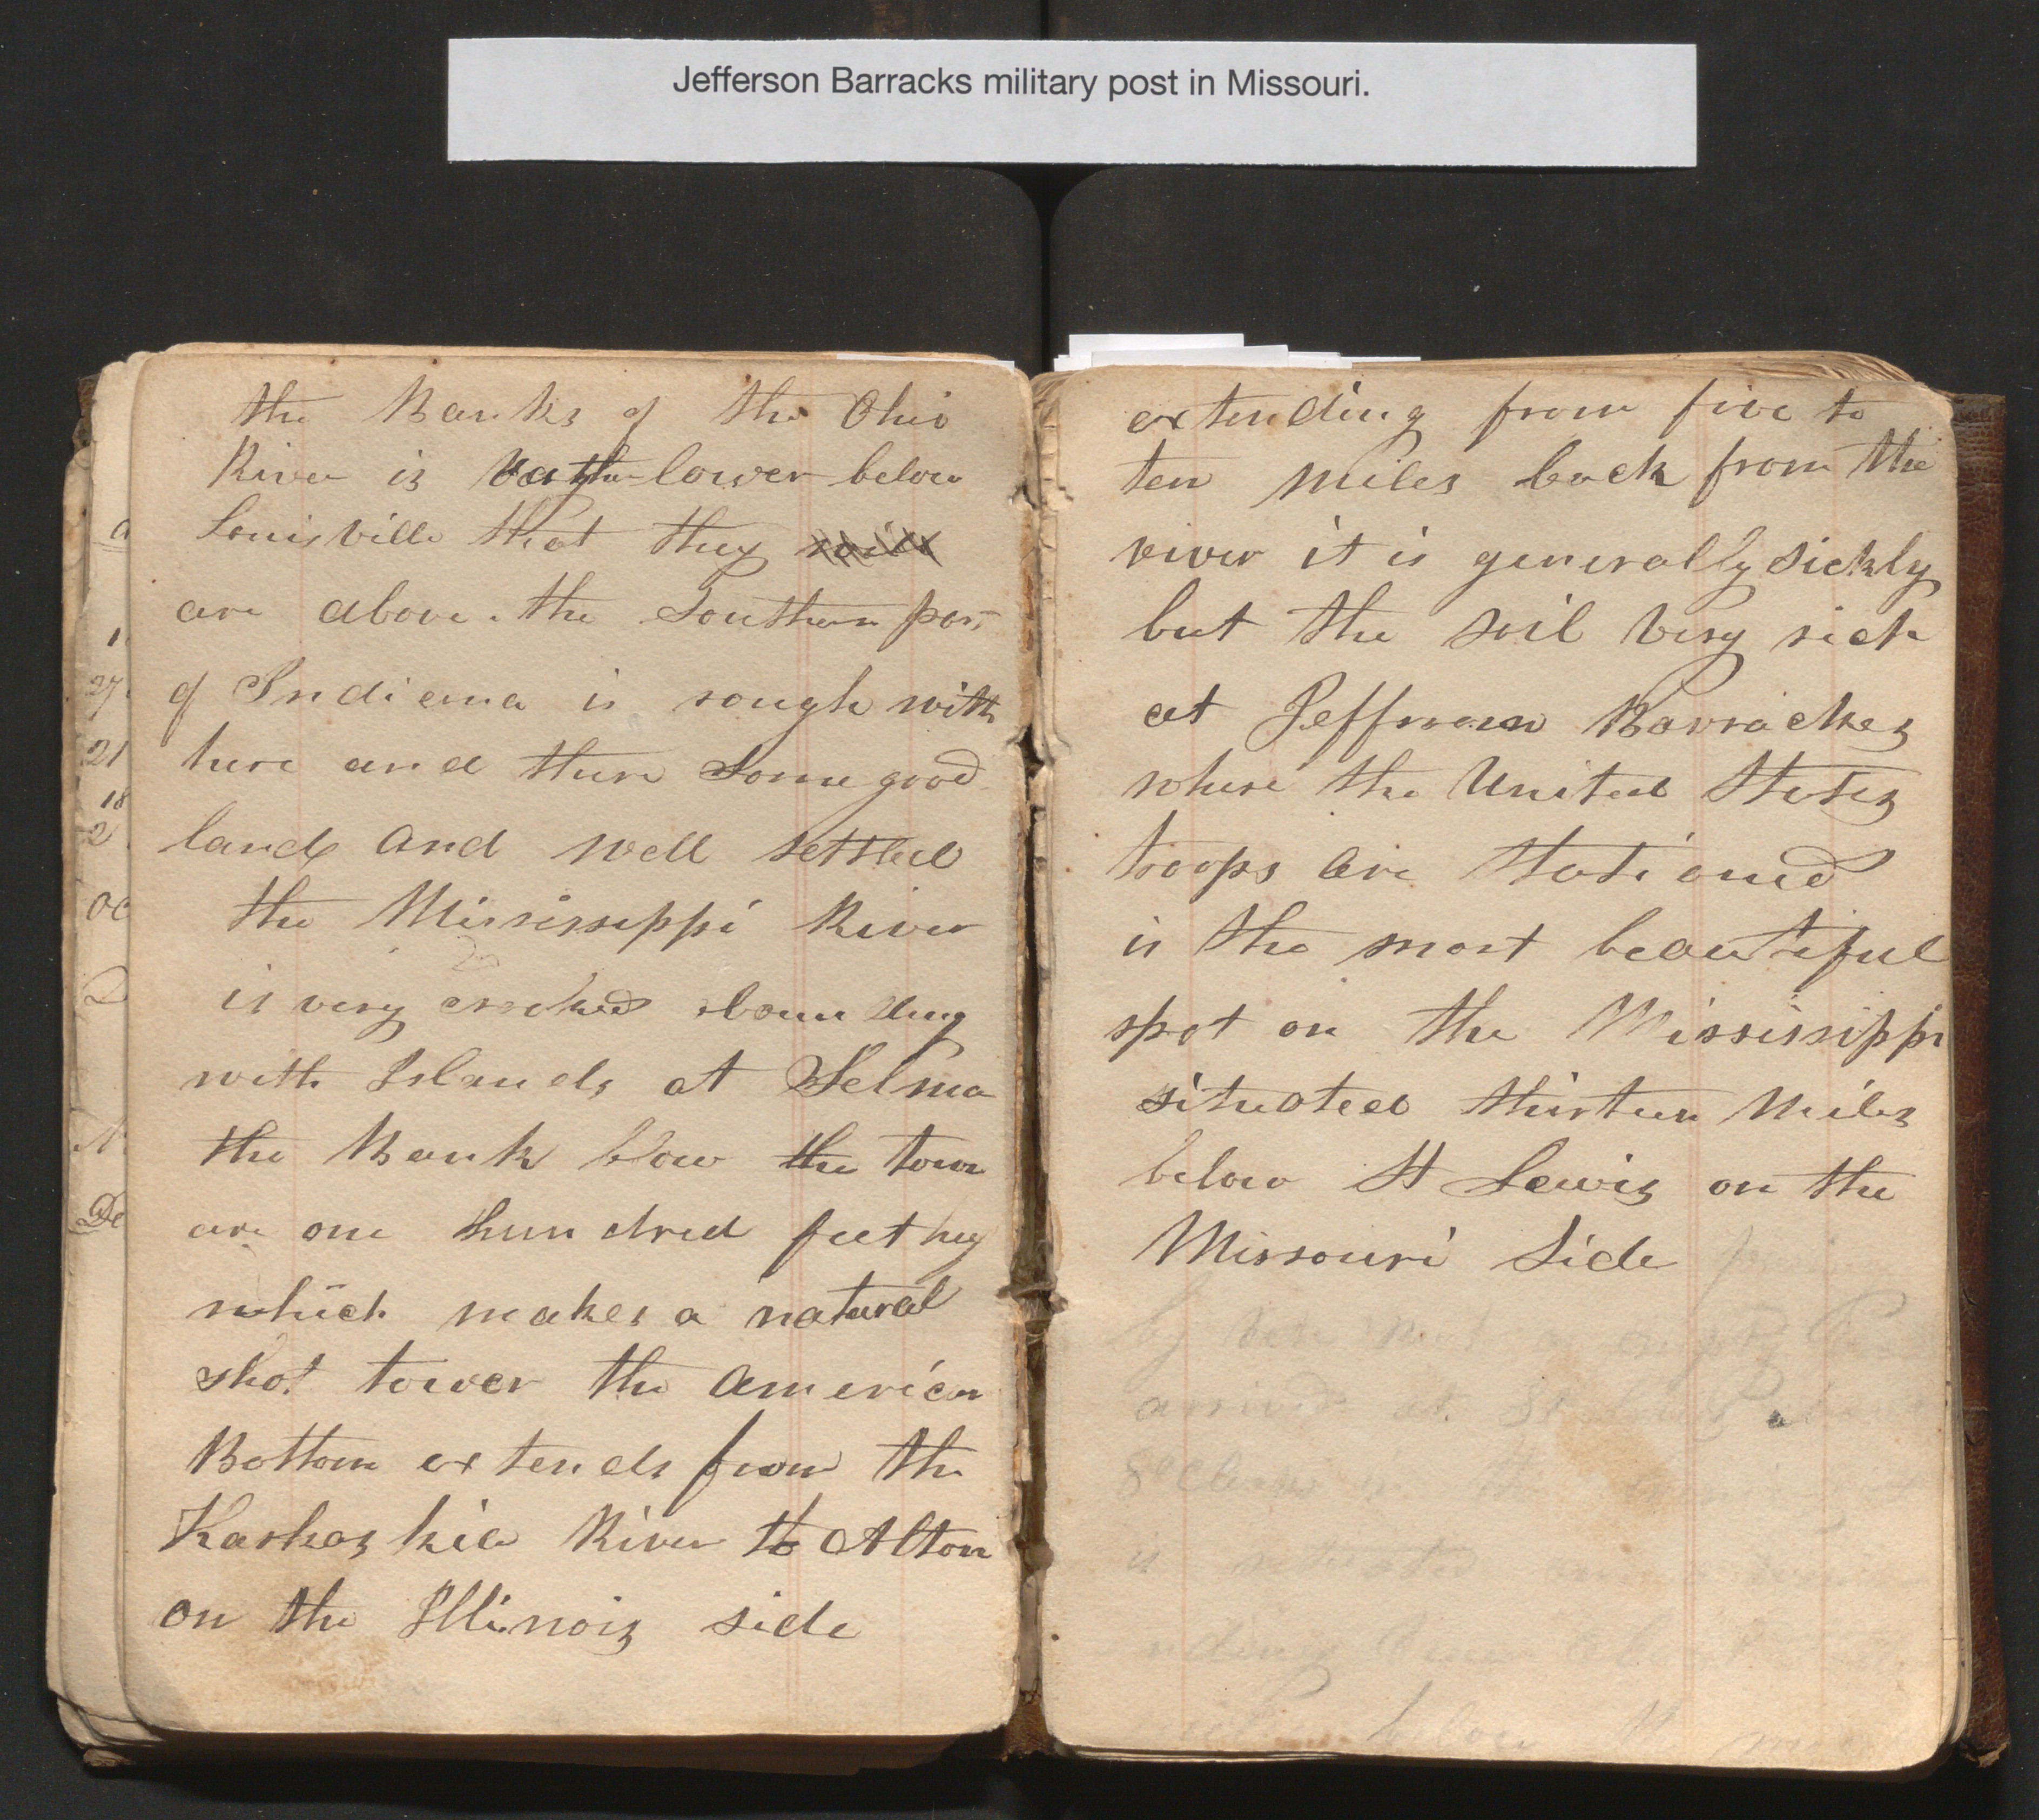 Jefferson Barracks military post in Missouri.
the Banks of the Ohio
River is rather lower below
Louisville that they
are above. the Southern part
of Indiana is rough with
here and there Some good
land and well settled
the Mississippi River
is very crooked abounding
with Islands at Selma
the Bank blow the town
are one hundred feet hig
which makes a natural
shot tower the American
Bottom extends from the
Kaskaskia River to Alton
on the Illinois side
extending from five to
ten miles back from the
river it is generally sickly
but the soil very rich
at Jefferson Barrackes
where the United States
troops are stationed
is the most beautiful
spot on the Mississippi
situated thirteen miles
below St Lewis on the
Missouri Side